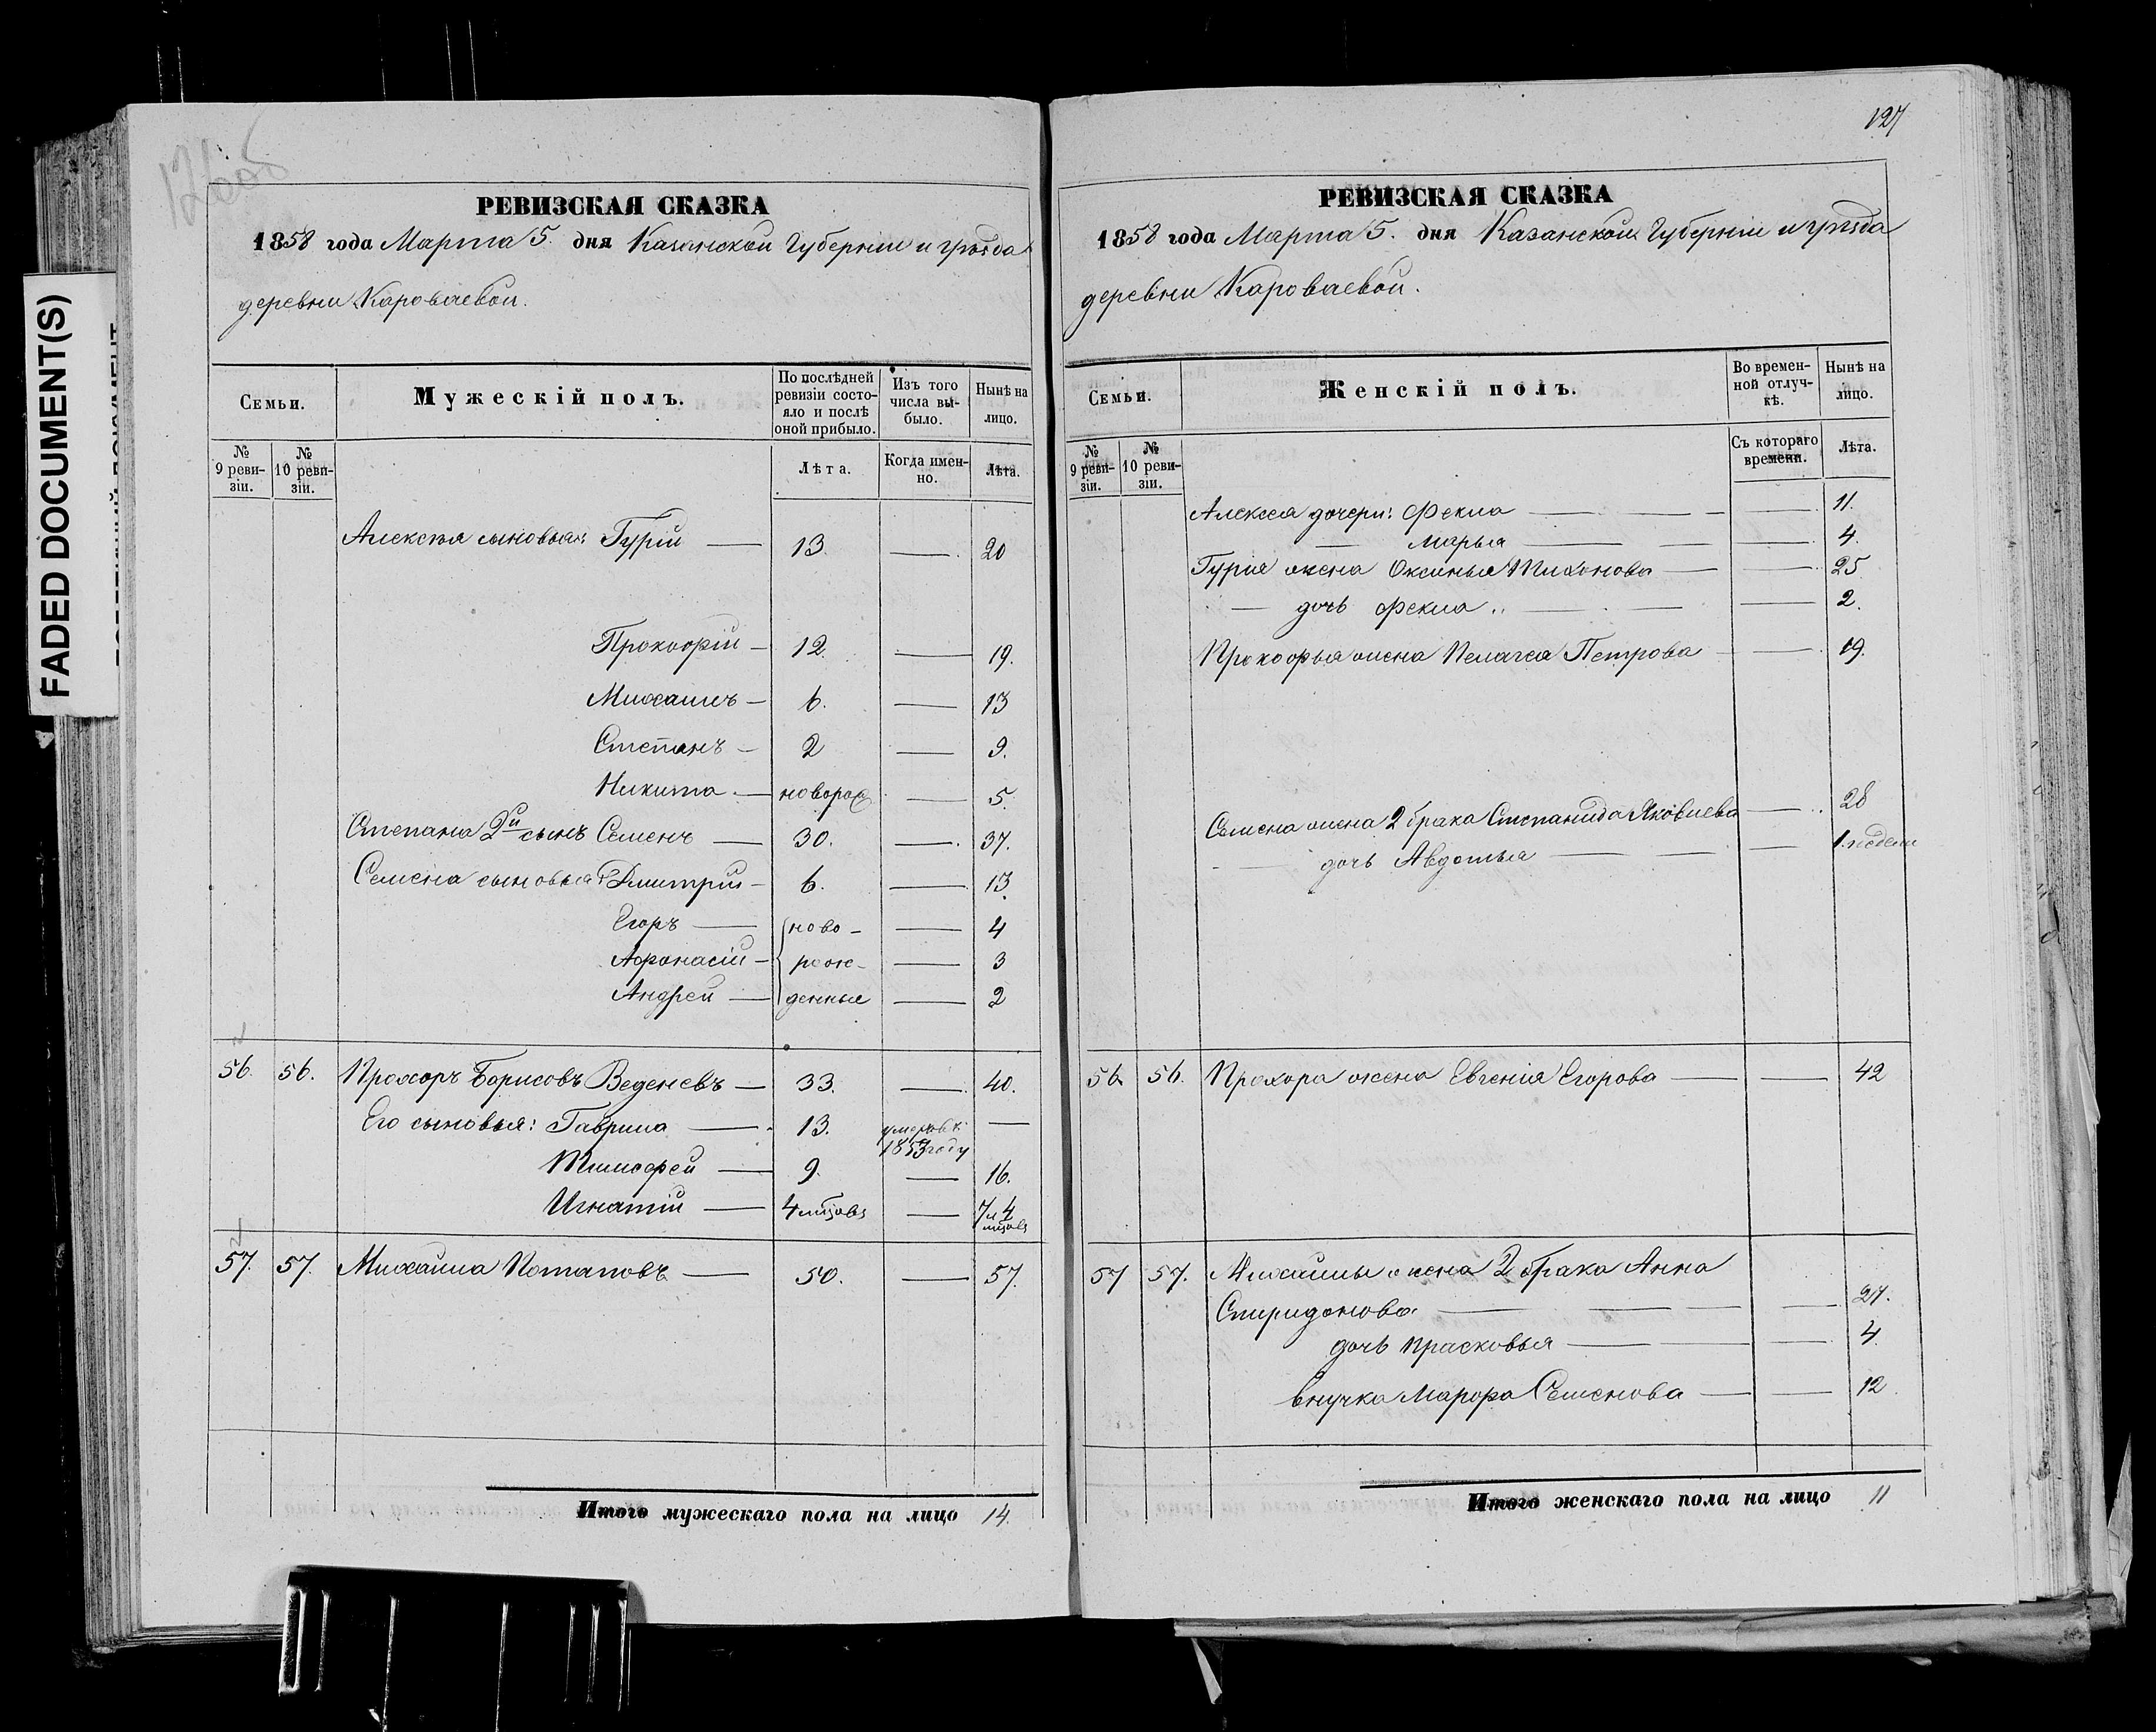 FADED DOCUMENT(S)
126об
РЕВИЗСКАЯ СКАЗКА
1858 года Марта 5. дня Казанской Губерніи и уѣзда
деревни Кароваевой.
Семьи. Мужескій полъ. По послѣдней ревизіи состояло и послѣ оной прибыло. Изъ того числа выбыло. Нынѣ на лицо.
№ 9 ревизіи. № 10 ревизіи. Лѣта. Когда именно. Лѣта.
Алексѣя сыновья: Гурій — 13. — 20
Прокофій — 12. — 19.
Михаилъ — 6. — 13
Степанъ — 2 — 9.
Никита — новорож — 5.
Степана 2й сынъ Семенъ — 30. — 37.
Семена сыновья: Дмитрій — 6. — 13.
Егоръ — ново- — 4
Афонасій — рож- — 3
Андрей — денные — 2
56. 56. Прохоръ Борисовъ Веденеевъ — 33. — 40.
Его сыновья: Гаврила — 13. умеръ въ 1853 году —
Тимофей — 9. — 16.
Игнатій — 4 мѣсовъ — 7 и 4 мѣсовъ
57. 57. Михайла Потаповъ — 50. — 57.
Итого мужескаго пола на лицо 14.
127
РЕВИЗСКАЯ СКАЗКА
1858 года Марта 5. дня Казанской Губерніи и уѣзда
деревни Кароваевой.
Семьи. Женскій полъ. Во временной отлучкѣ. Нынѣ на лицо.
№ 9 ревизіи. № 10 ревизіи. Съ котораго времени. Лѣта.
Алексея дочери: Фекла — — 11.
— Марья — — 4.
Гурия жена Оксинья Тихонова — — 25
— дочь Фекла — — 2.
Прокофья жена Пелагея Петрова — — 19.
Семена жена 2 брака Степанида Яковлева — 28
— дочь Авдотья — — 1 недели
56 56. Прохора жена Евгенія Егорова — — 42
57 57. Михайлы жена 2 брака Анна
Спиридонова — — 27.
дочь Прасковья — — 4.
внучка Марфа Семенова — — 12.
Итого женскаго пола на лицо 11